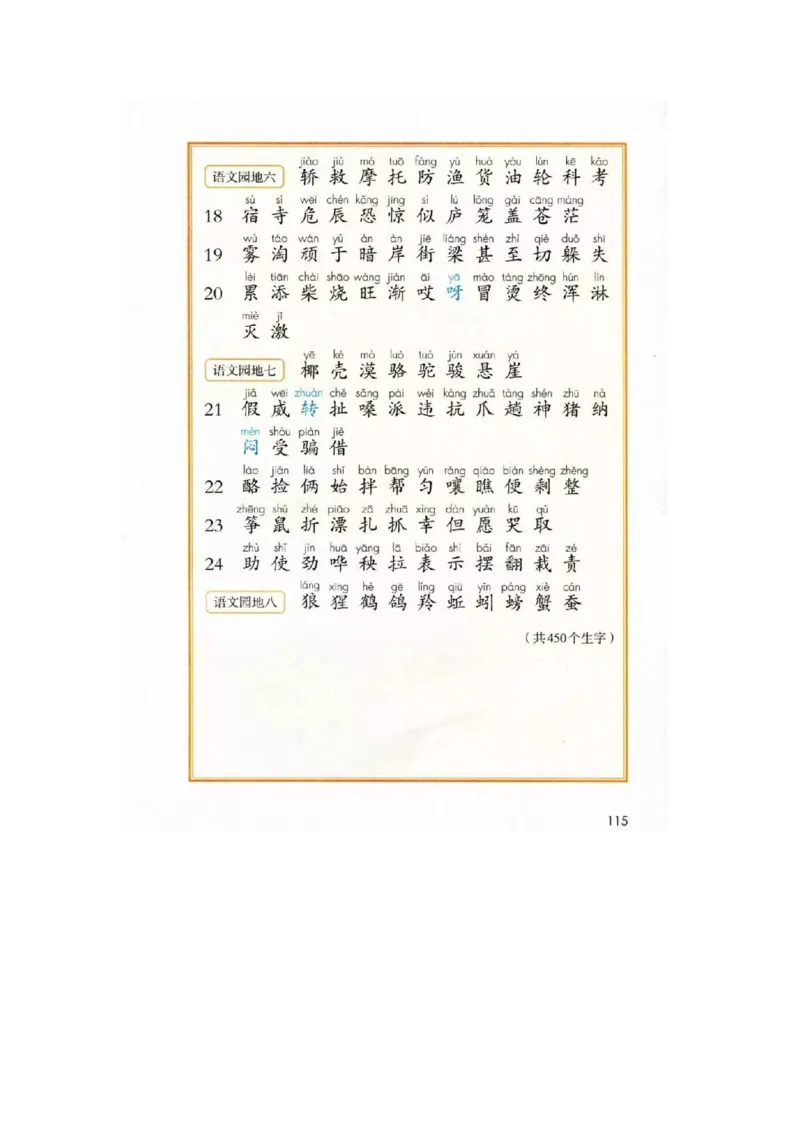 jiào jiù mó tuō fáng yú huò yóu lún kē kǎo
语文园地六 轿 救 摩 托 防 渔 货 油 轮 科 考
sù sì wēi chén kǒng jīng sì lú lóng gài cāng máng
18 宿 寺 危 辰 恐 惊 似 庐 笼 盖 苍 茫
wù táo wán yú àn àn jiē liáng shèn zhì qiè duǒ shī
19 雾 淘 顽 于 暗 岸 街 梁 甚 至 切 躲 失
lèi tiān chái shāo wàng jiàn āi yā mào tàng zhōng hún lín
20 累 添 柴 烧 旺 渐 哎 呀 冒 烫 终 浑 淋
miè jī
灭 激
yē ké mò luò tuó jùn xuán yá
语文园地七 椰 壳 漠 骆 驼 骏 悬 崖
jiǎ wēi zhuàn chě sǎng pài wéi kàng zhuǎ tàng shén zhū nà
21 假 威 转 扯 嗓 派 违 抗 爪 趟 神 猪 纳
mèn shòu piàn jiè
闷 受 骗 借
lào jiǎn liǎ shǐ bàn bāng yún rǎng qiáo biàn shèng zhěng
22 酪 捡 俩 始 拌 帮 匀 嚷 瞧 便 剩 整
zhēng shǔ zhé piāo zā zhuā xìng dàn yuàn kū qǔ
23 筝 鼠 折 漂 扎 抓 幸 但 愿 哭 取
zhù shǐ jìn huā yāng lā biǎo shì bǎi fān zāi zé
24 助 使 劲 哗 秧 拉 表 示 摆 翻 栽 责
láng xīng hè gē líng qiū yǐn páng xiè cán
语文园地八 狼 猩 鹤 鸽 羚 蚯 蚓 螃 蟹 蚕
（共450个生字）
115